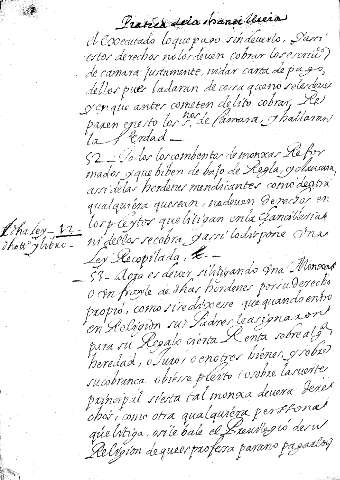 Pratica de la chancilleria
el executado lo que pago sin deverlo, y assi
estos derechos no los deven cobrar los escriu.os
de camara justamente, ni dar carta de pago,
dellos pues la daran de cosa que no se les deve
y en que antes cometen delito cobrar, Re
paren en esto los s.nos de Camara, y hallaran
la Verdad. —
52 — Todos los conbentos de monxas Refor
mados y que biben debajo de Regla, y clausura
assi de las hordenes mendicantes como de otra
qualquiera que sean, no deven derechos en
los pleytos que litigan en la chancilleria
ni dellos se cobra, y assi lo dispone una
Ley Recopilada,
dha ley — 12 —
53 — Aora es de ver, si litigando una Monxa
o un frayle de dhas hordenes por su derecho
propio, como si se dixese que quando entro
en Religion sus Padres le asignaron
para su Regalo cierta Renta sobre alg.a
heredad, o Juro, o en otros bienes, y sobre
su cobranca ubiese pleito, o sobre la suerte
principal si esta tal monxa devera dere
chos, como otra qualquiera perssona
que litiga, o si le bale el Previlegio de su
Religion de que es professa para no pagarlos